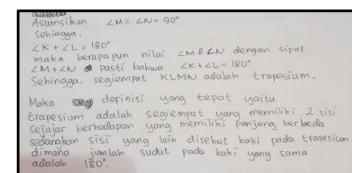 Asumsikan ∠M = ∠N = 90°
Sehingga,
∠K + ∠L = 180°
maka berapapun nilai ∠M & ∠N dengan sifat
∠M + ∠N pasti bahwa ∠K + ∠L = 180°
Sehingga, segiempat KLMN adalah trapesium.
Maka definisi yang tepat yaitu
trapesium adalah segiempat yang memiliki 2 sisi
sejajar berhadapan yang memiliki panjang berbeda
sedangkan sisi yang lain disebut kaki pada trapesium
dimana jumlah sudut pada kaki yang sama
adalah 180°.